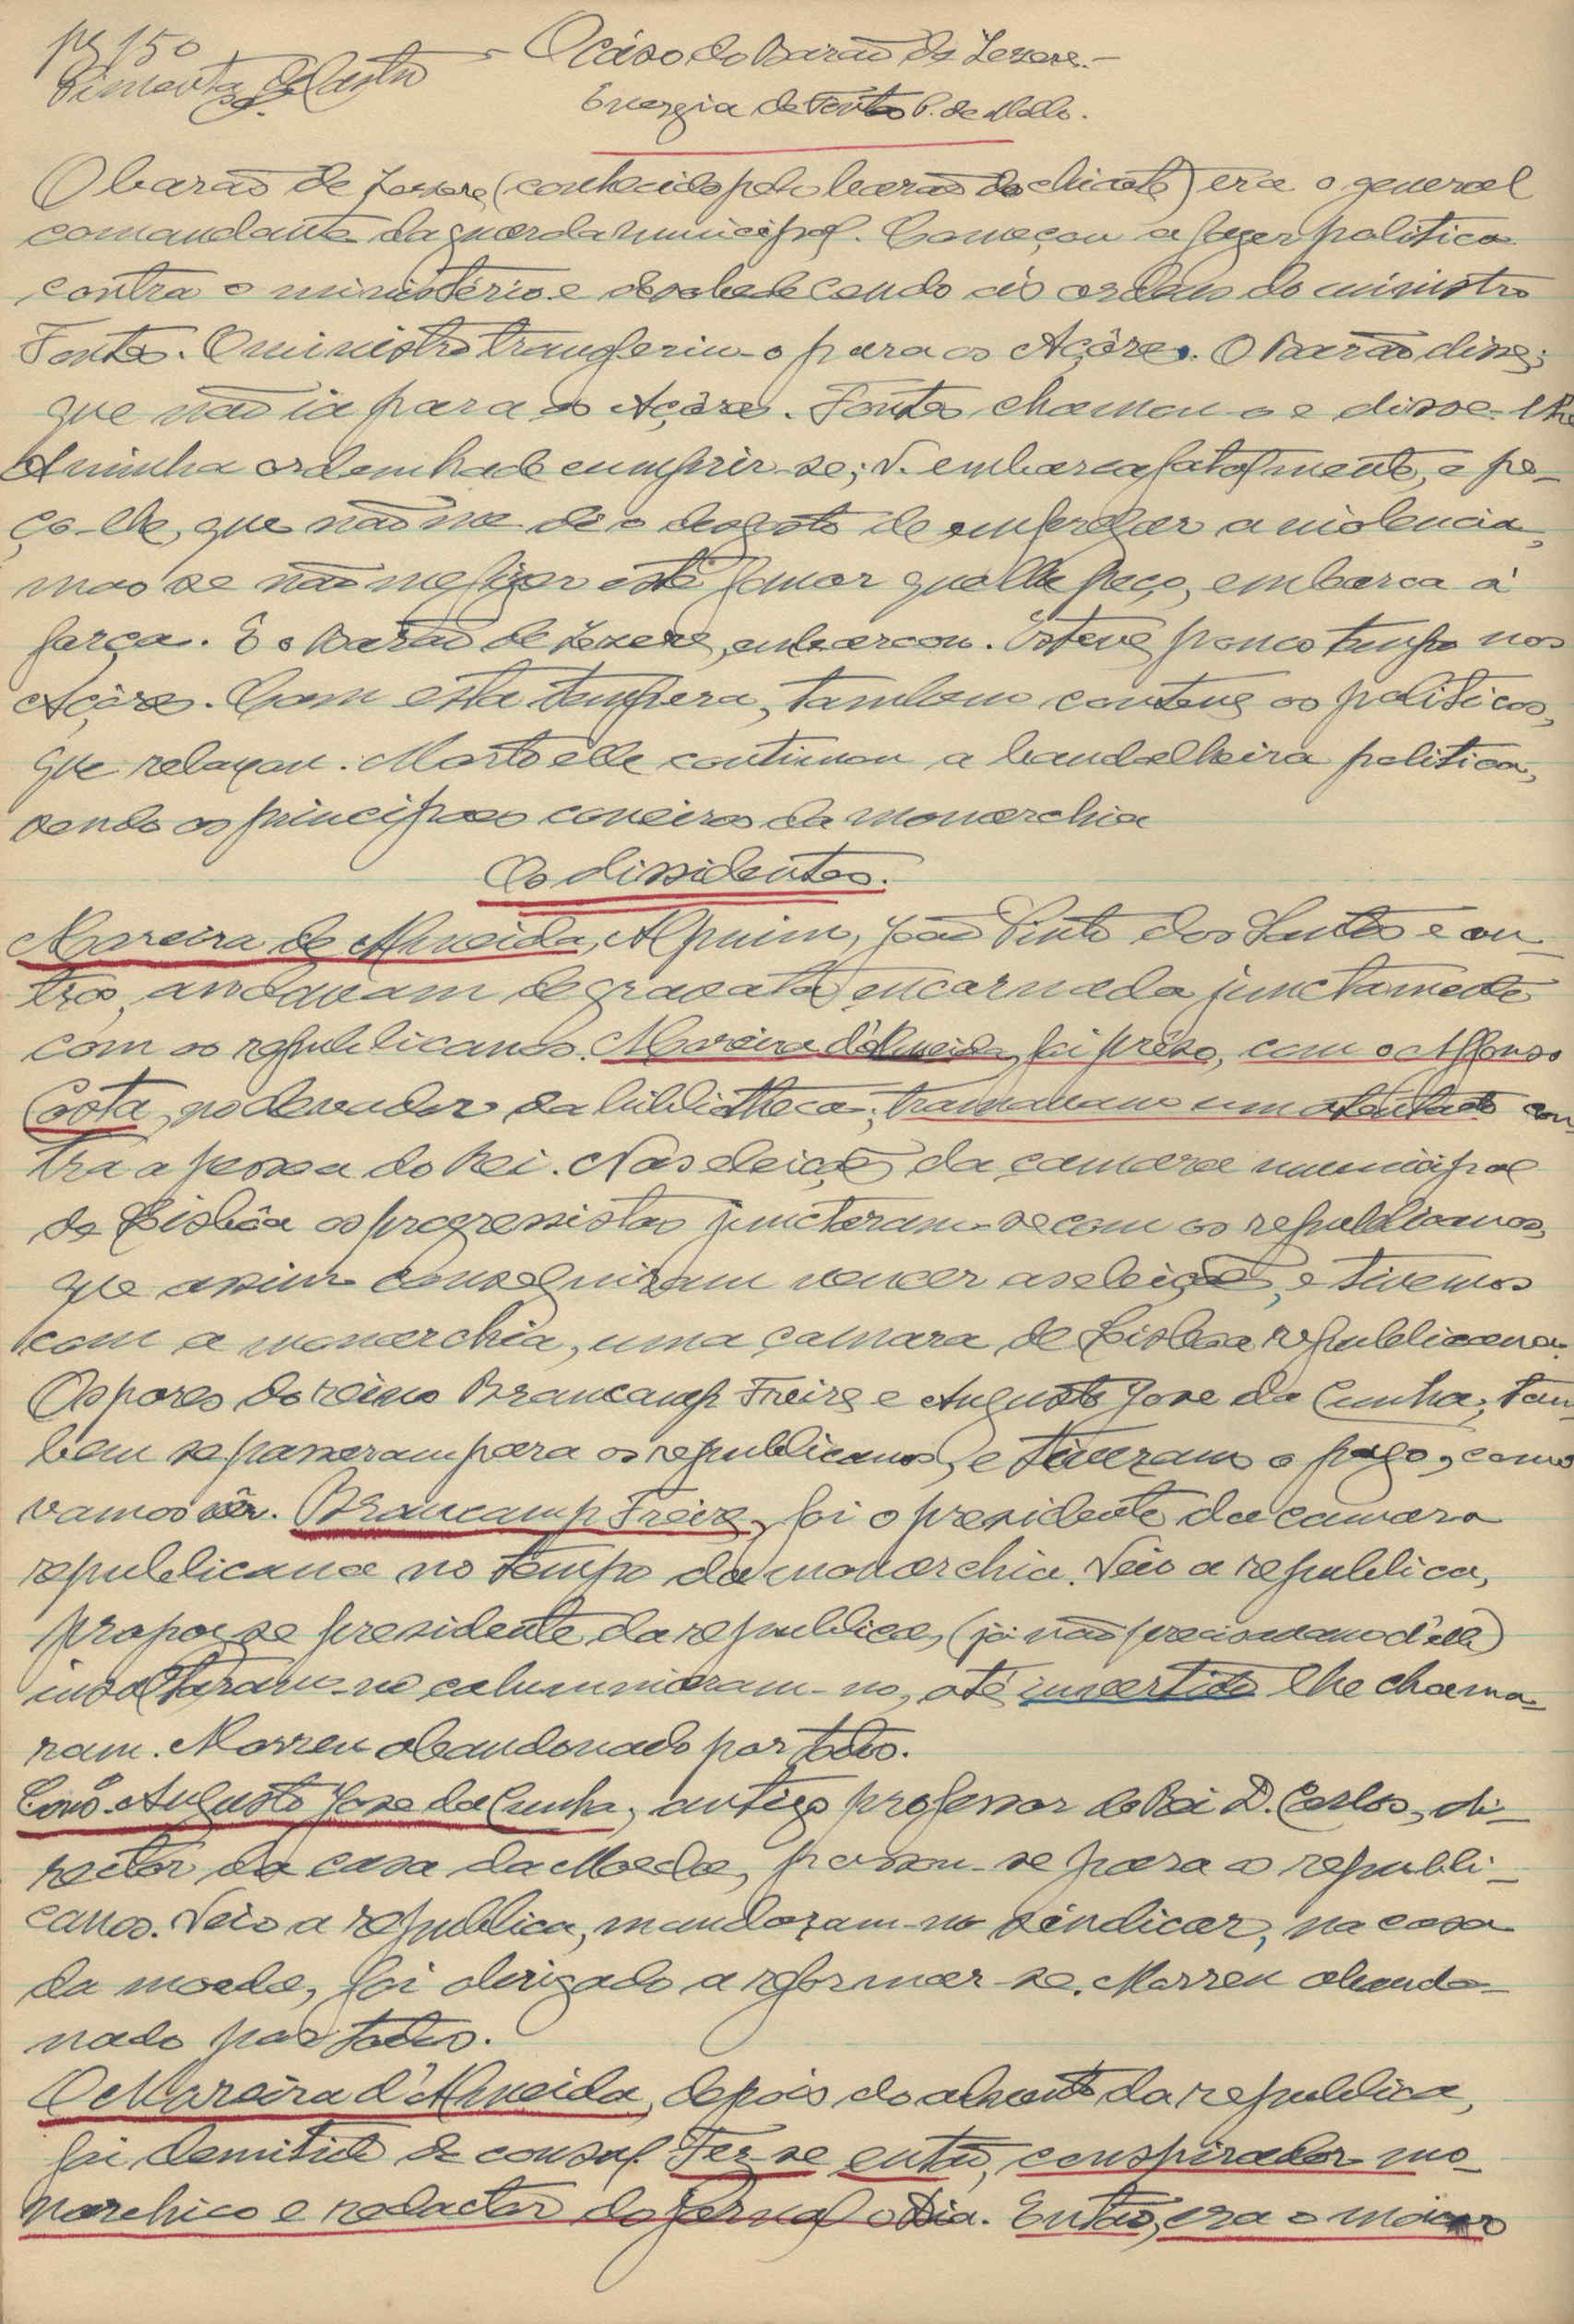 pg 150
Pimenta de Castro
O cáso do Barão de Zezere.-
Energia de Fontes P. de Mello.
O barão de Zezere, (conhecido pelo barão do chicote) era o general
comandante da guarda municipal. Começou a fazer politica
contra o ministério e desobedecendo ás ordens do ministro
Fontes. O ministro transferiu-o para os Açôres. O Barão disse;
que não ia para os Açôres. Fontes chamou-o e disse-lhe
A minha ordem hade cumprir-se; V. embarca fatalmente, e pe-
ço-lhe, que não me dê o desgosto de empregar a violencia,
mas se não me fizer este favor que lhe peço, embarca á
força. E o Barão de Zezere, embarcou. Esteve pouco tempo nos
Açôres. Com esta tempera, tambem conteve os politicos,
que relaxou. Morto elle continuou a bandalheira politica,
sendo os principaes coveiros da monarchia
Os dissidentes.
Moreira de Almeida, Alpuim, João Pinto dos Santos e ou-
tros, andavam de gravata encarnada junctamente
com os republicanos. Moreira d'Almeida, foi prêso, com o Affonso
Costa, no elevador da bibliotheca; tramavam um atentado con-
tra a pessoa do Rei. Nas eleições da camara municipal
de Lisbôa os progressistas junctaram-se com os republicanos,
que assim conseguiram vencer as eleições, e tivemos
com a monarchia, uma camara de Lisboa republicana.
Os pares do reino Brancamp Freire e Augusto Jose da Cunha, tam
bem se passaram para os republicanos, e tiveram o pago, como
vamos vêr. Brancamp Freire, foi o presidente da camara
republicana no tempo da monarchia. Veio a republica,
propoz-se presidente da republica, (já não precisavam d'elle)
insultaram-no calumniaram-no, até invertido lhe chama-
ram. Morreu abandonado por todos.
Consº. Augusto Jose da Cunha, antigo professor do Rei D. Carlos, di-
rector da casa da Moeda, passou-se para os republi-
canos. Veio a republica, mandaram-no sindicar, na casa
da moeda, foi obrigado a reformar-se. Morreu abando-
nado por todos.
O Moreira d'Almeida, depois do advento da republica,
foi demitido de consul. Fez-se então, conspirador mo-
narchico e redactor do jornal o Dia. Então, era o maior